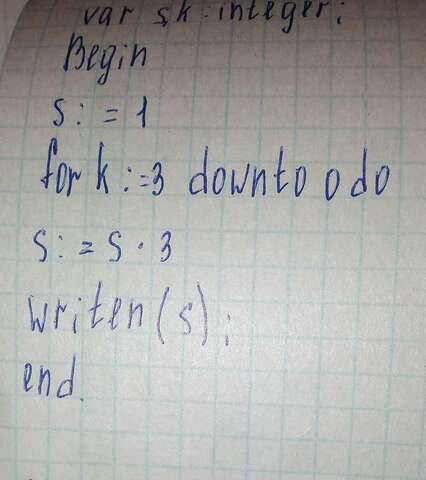 var s,k:integer;
Begin
s:=1
for k:=3 downto 0 do
s:=s·3
writen(s);
end.